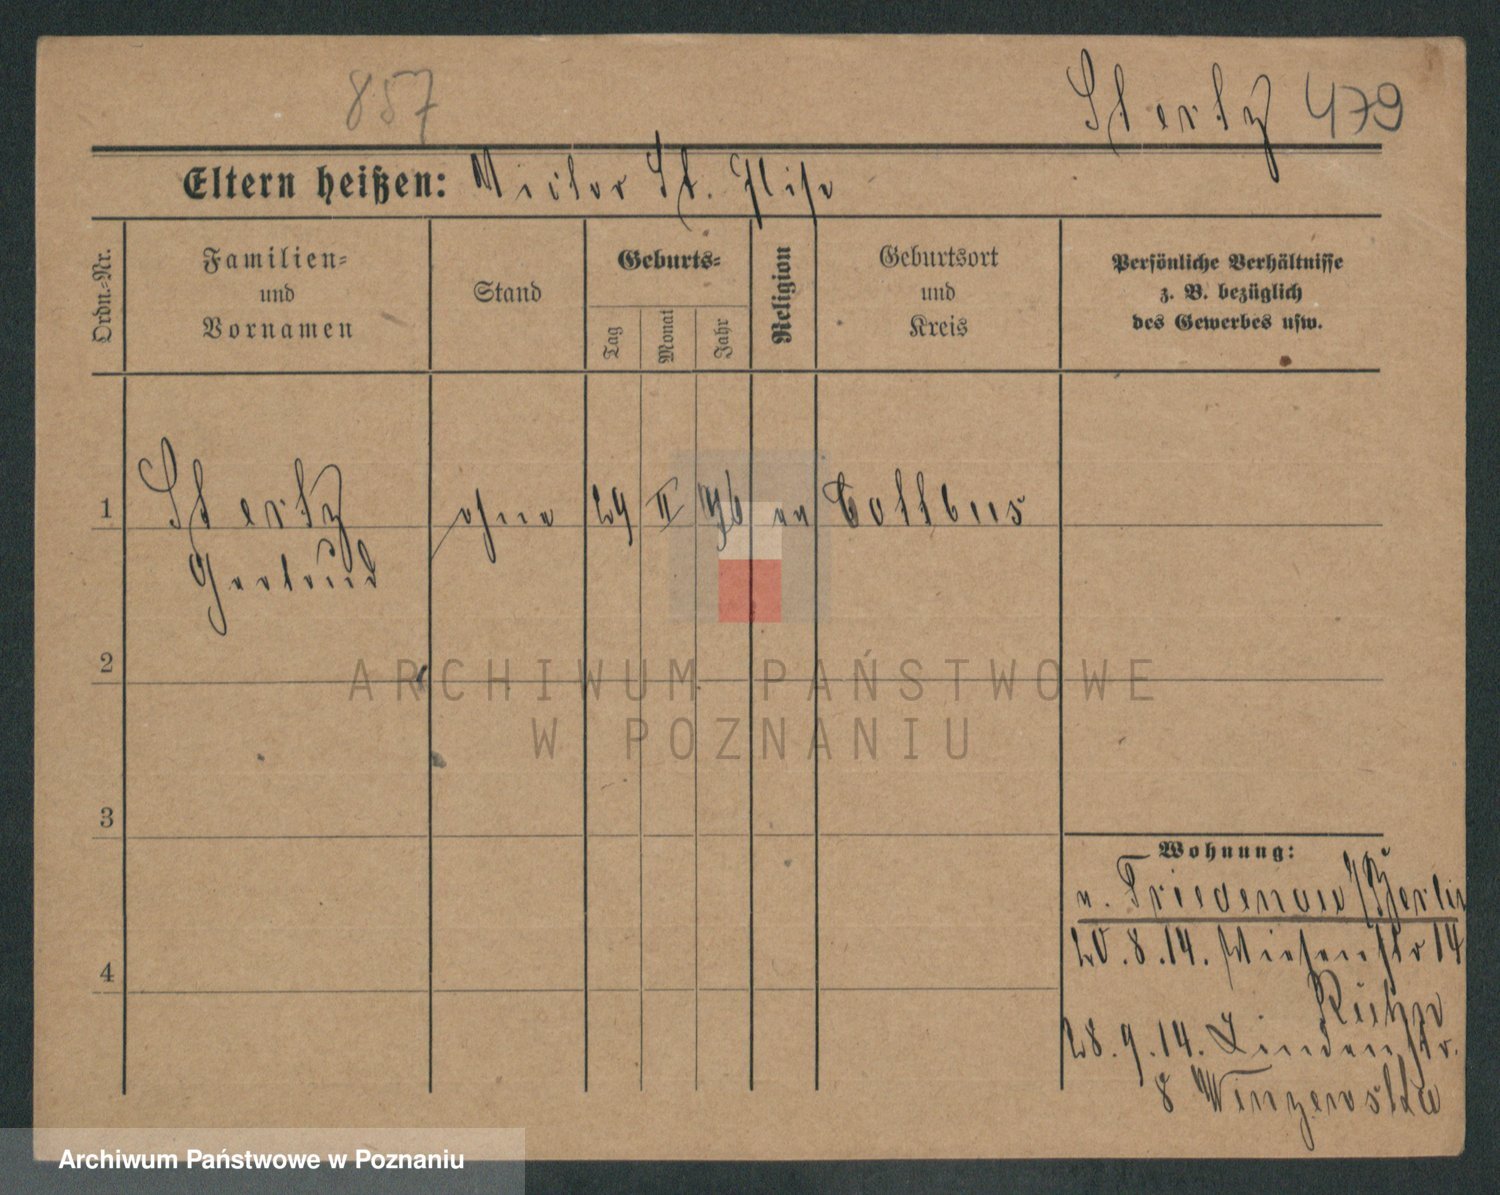 857
Stertz 479
Eltern heißen: Victor St. Elise
Ordn.-Nr.
Familien-
und
Vornamen
Stand
Geburts-
Tag
Monat
Jahr
Religion
Geburtsort
und
Kreis
Persönliche Verhältnisse
z. B. bezüglich
des Gewerbes usw.
1
Stertz ohne 29 II 96 ev Cottbus
Gertrud
2
3
4
Wohnung:
n. Friedenau / Berlin
20.8.14. Wiesenstr 14
28.9.14. Lindenstr.
8
ARCHIWUM PAŃSTWOWE
W POZNANIU
Archiwum Państwowe w Poznaniu